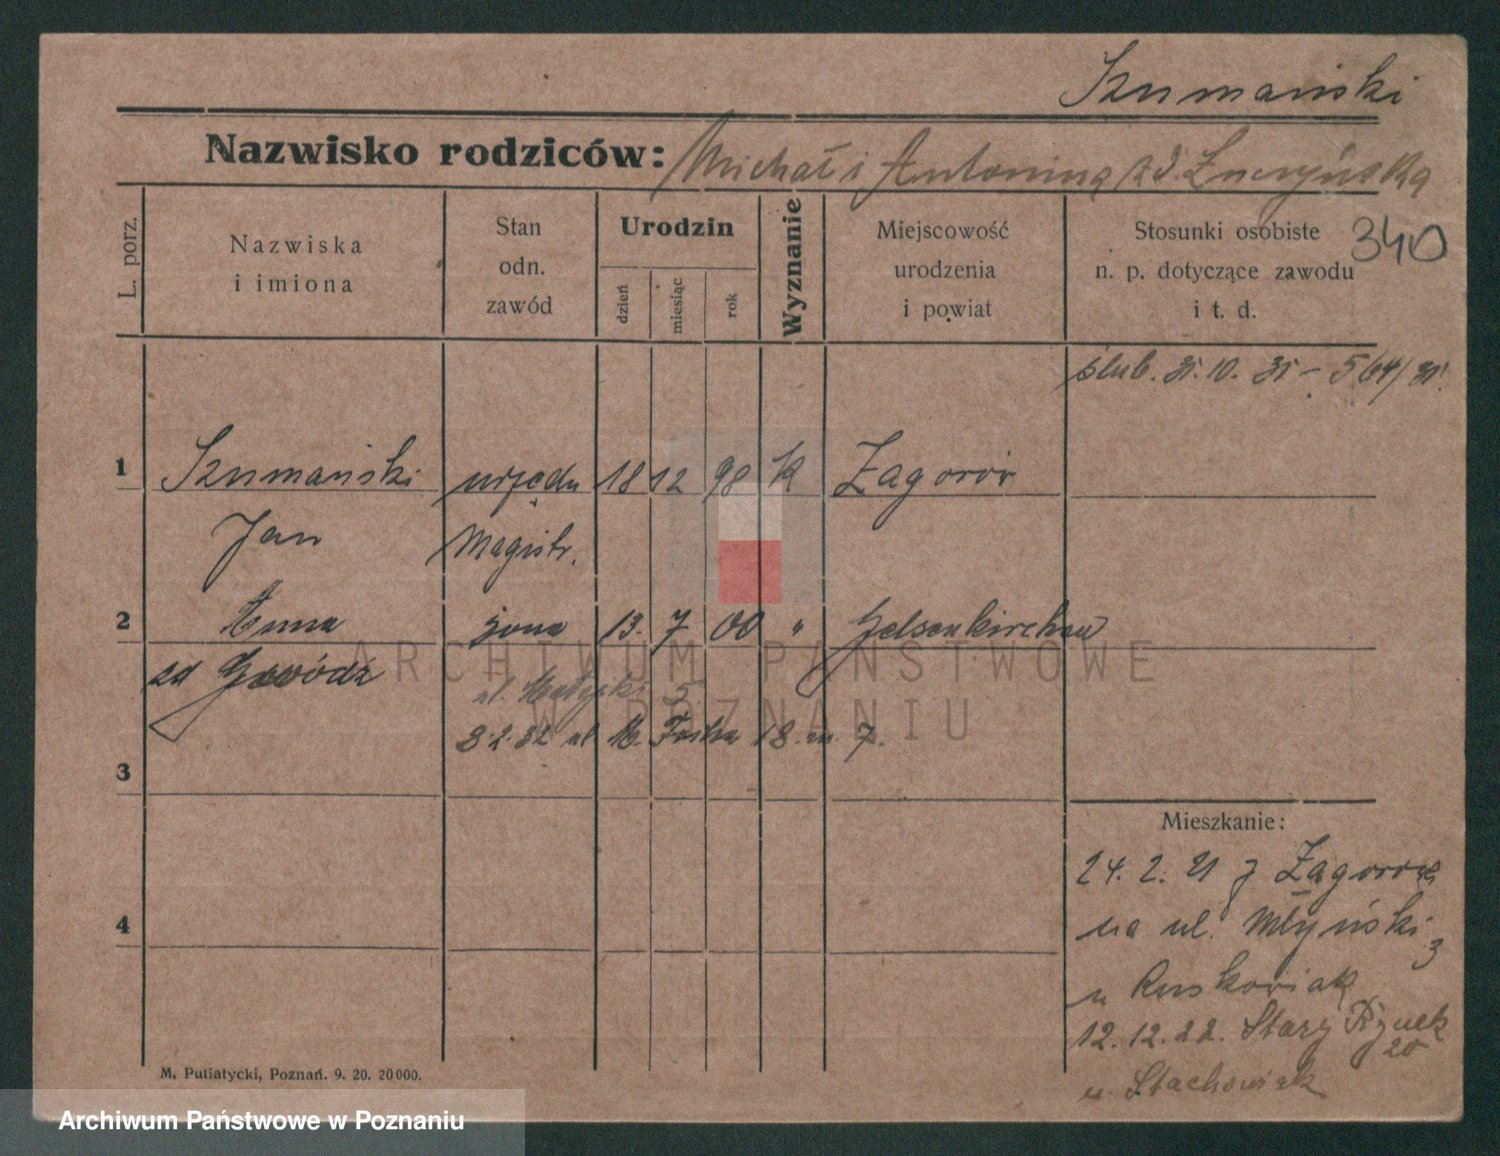 Szumański
Nazwisko rodziców: Michał i Antonina zd.
L. porz.
Nazwiska
i imiona
Stan
odn.
zawód
Urodzin
dzień
miesiąc
rok
Wyznanie
Miejscowość
urodzenia
i powiat
Stosunki osobiste
n. p. dotyczące zawodu
i t. d.
340
ślub. 31.10.31 – 564/31.
1 Szumański urzędn 18 12 98 k Zagorów
Jan Magistr.
2 Anna żona 13. 7 00 " Gelsenkirchen
zd Gawódź
ul. 5
8.2.32 ul M. Focha 18. m. 7.
3
Mieszkanie:
24. 2. 21 z Zagorowa
na ul. Młyński. 3
4
u Ruskowiak
12.12.22. Stary Rynek
20
u. Stachowiak
M. Putiatycki, Poznań. 9. 20. 20000.
ARCHIWUM PAŃSTWOWE
W POZNANIU
Archiwum Państwowe w Poznaniu